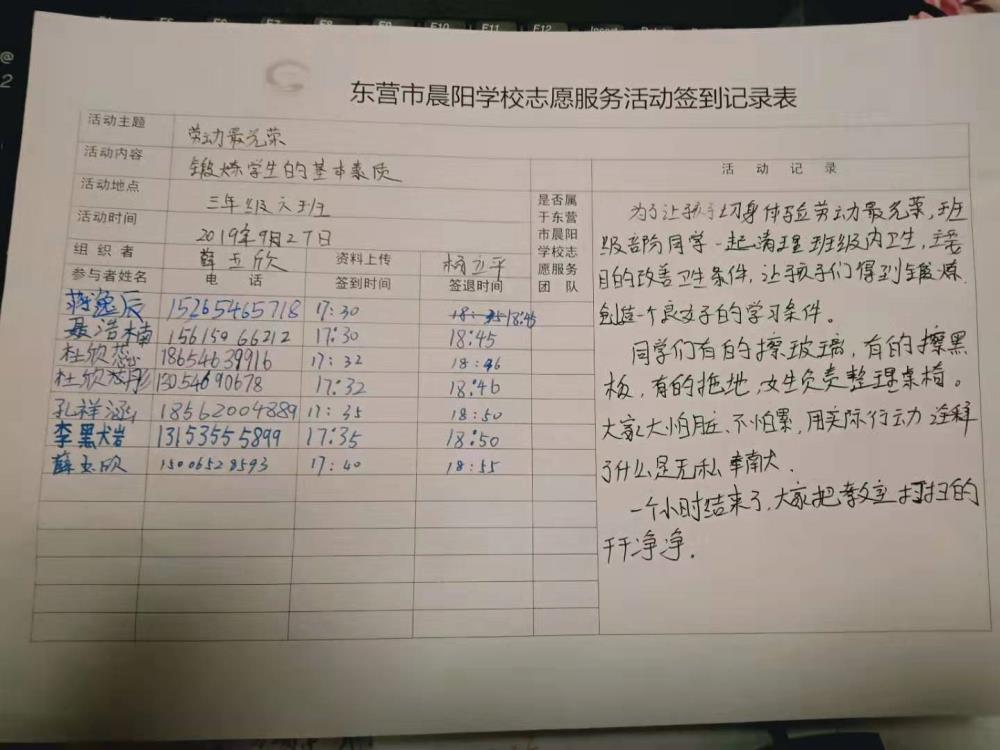 东营市晨阳学校志愿服务活动签到记录表
活动主题 劳动最光荣
活动内容 锻炼学生的基本素质
活动地点 三年级六班
活动时间 2019年9月27日
组织者 薛玉欣 资料上传 杨立平
参与者姓名 电话 签到时间 签退时间
是否属
于东营
市晨阳
学校志
愿服务
团队
蒋逸辰 15265465718 17:30 18:45
聂浩楠 15615966212 17:30 18:45
杜欣蕊 18654639916 17:32 18:46
杜欣彤 13054690678 17:32 18:46
孔祥涵 18562004889 17:35 18:50
李黑犬岩 13153555899 17:35 18:50
薛玉欣 15006528593 17:40 18:55
活动记录
为了让孩子切身体验劳动最光荣,班
级部份同学一起清理班级内卫生,主要
目的改善卫生条件,让孩子们得到锻炼
创造一个良好的学习条件。
同学们有的擦玻璃,有的擦黑
板,有的拖地,女生负责整理桌椅。
大家不怕脏、不怕累,用实际行动诠释
了什么是无私奉献。
一个小时结束了,大家把教室打扫的
干干净净.
@
2
F5
F6
F7
F8
F9
F10
F11
F12
Insert